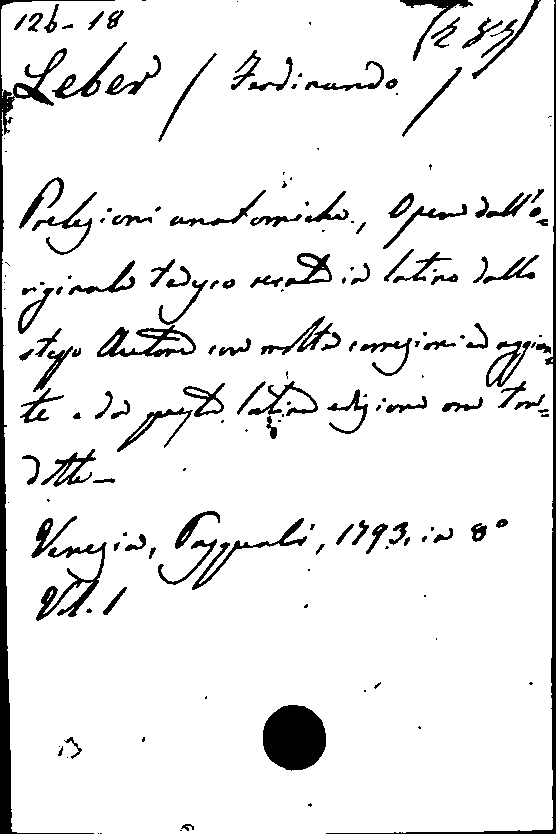 12b-18
Leber / Ferdinando /
Prelezioni anatomiche, Opera dall'o=
riginale tedesco recata in latino dallo
stesso Autore con molte correzioni ed aggion=
te e da questa latina edizione ora tra=
dotte_
Venezia, Pasquali, 1793. in 8°
Vol. 1